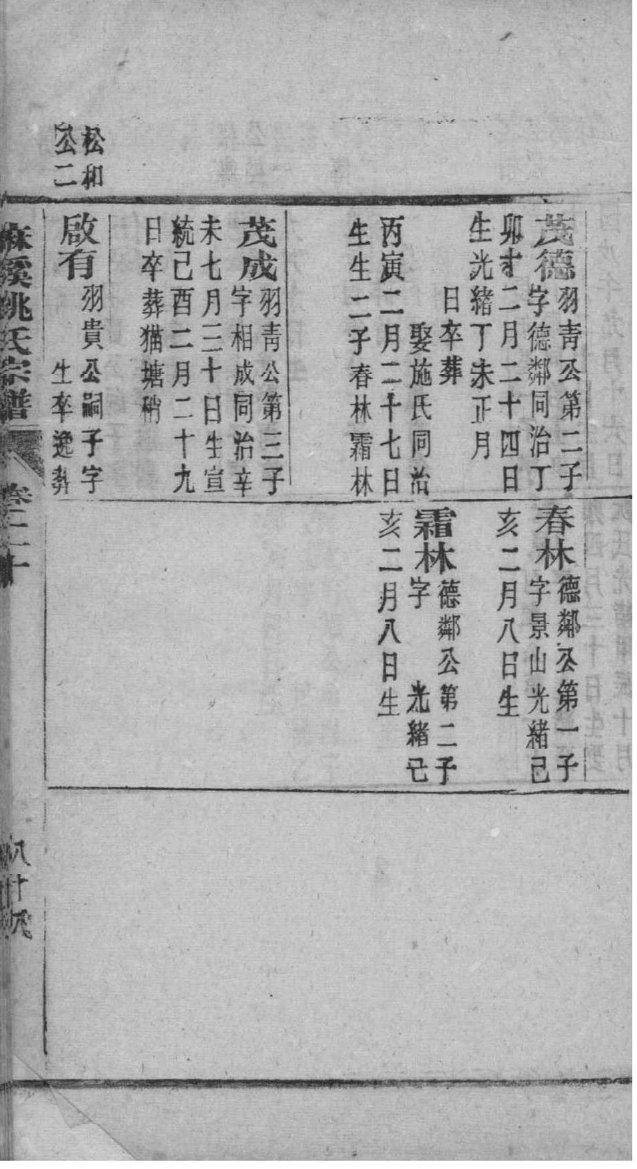 茂德
羽靑公第二子
字德鄰同治丁
卯十二月二十四日
生光緒丁未正月
日卒葬
娶施氏同治
丙寅二月二十七日
生生二子春林霜林
茂成
羽靑公第三子
字相成同治辛
未七月三十日生宣
統己酉二月二十九
日卒葬猫塘稍
松和
公二
啟有
羽貴公嗣子字
生卒逸葬
春林
德鄰公第一子
字景山光緒己
亥二月八日生
霜林
德鄰公第二子
字 光緒己
亥二月八日生
麻溪姚氏宗譜
卷二十